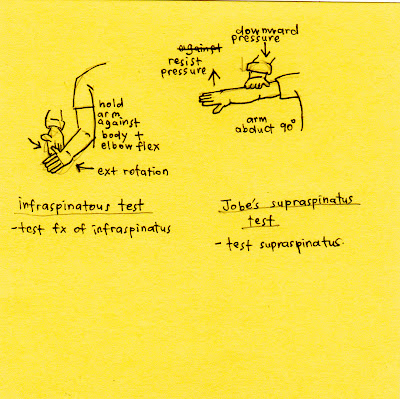 hold
arm
against
body +
elbow flex
ext rotation
infraspinatous test
-test fx of infraspinatus
downward
pressure
against
resist
pressure
arm
abduct 90°
Jobe's supraspinatus
test
- test supraspinatus.